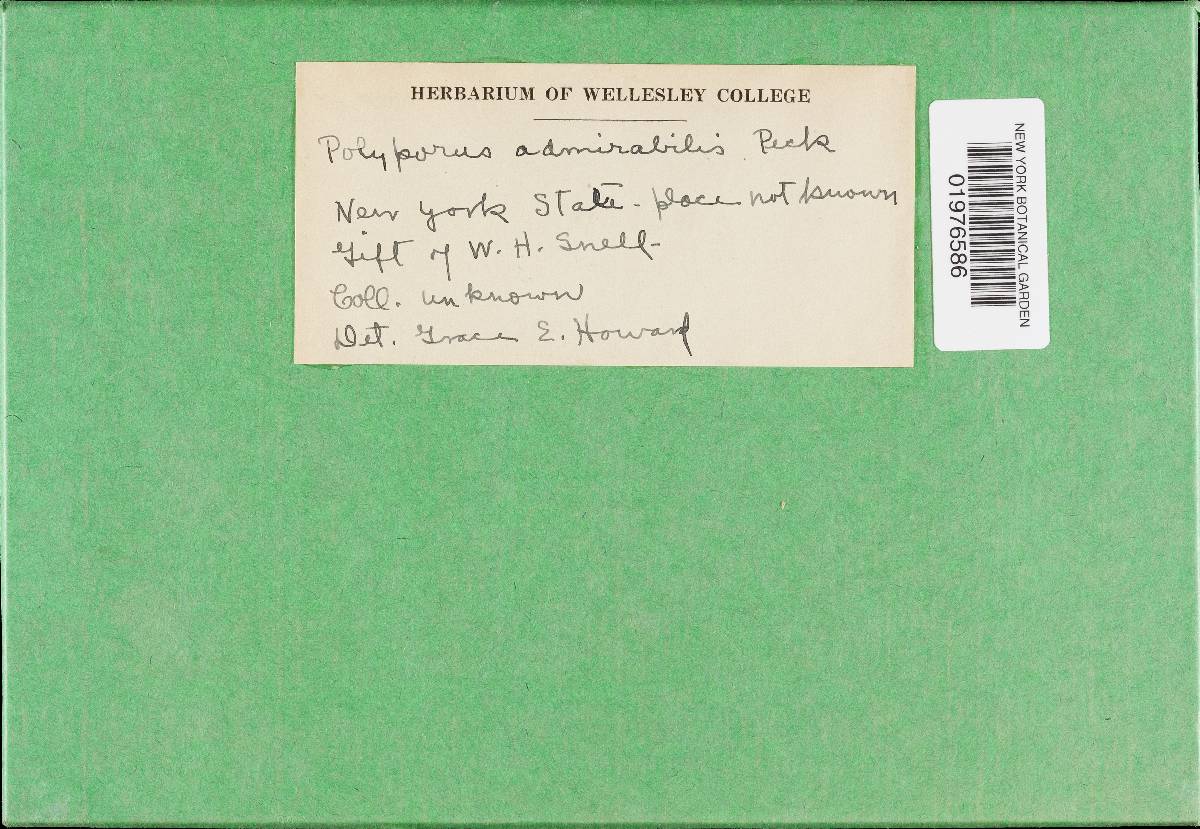 HERBARIUM OF WELLESLEY COLLEGE
Polyporus admirabilis Peck
New York State - place not known
Gift of W. H. Snell -
Coll. unknown
Det. Grace E. Howard
NEW YORK BOTANICAL GARDEN
01976586